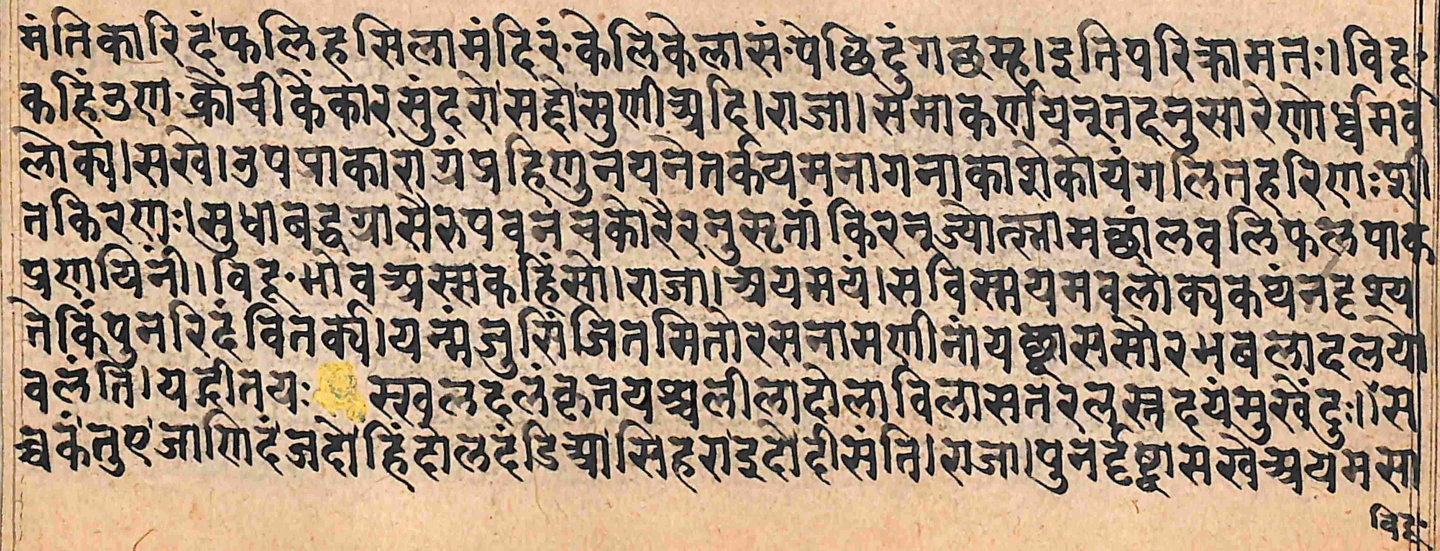 मंतिकारिदंफलिहसिलामंदिरं॰केलिकेलासं॰पेछिदुंगछम्ह।इतिपरिक्रामतः।विदू॰
कहिंउण॰क्रोंचीकेंकारसुंदरोसद्दोसुणीअदि।राजा।समाकर्णयन्तदनुसारेणोर्ध्वमव
लोक्य।सखे।उपप्राकाराग्रंप्रहिणुनयनेतर्कयमनागनाकाशेकोयंगलितहरिणःशी
तकिरणः।सुधाबद्धग्रासैरुपवनचकोरैरनुसृतांकिरन्ज्योत्स्नामछांलवलिफलपाक
प्रणयिनीं।विदू॰भोवअस्सकहिंसो।राजा।अयमयं।सविस्मयमवलोक्यकथंनदृश्य
तेकिंपुनरिदंवितर्क्य।यन्मंजुसिंजितमितोरसनामणीनांयच्छ्वाससौरभबलादलयो
वलंति।यद्गीतयः स्खलदलंकृतयश्चलीलादोलाविलासतरलस्तदयंमुखेंदुः॥स
च्चकंतुएजाणिदंजदोहिंदोलदंडिआसिहराइदोदीसंति।राजा।पुनर्दृष्ट्वासखेअयमसा
विदू॰